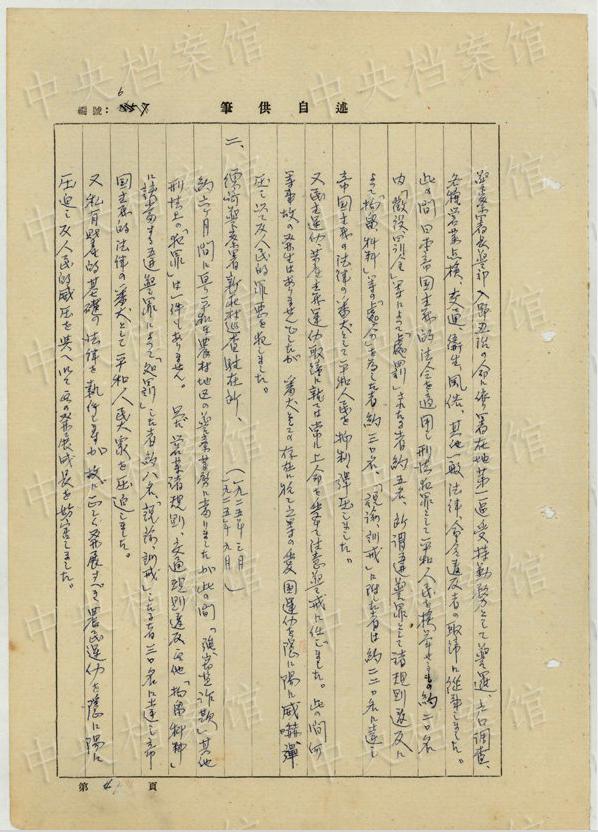 述自供筆
編號：
6
警察署長警部入野五郎の命に依り署在地第一區受持勤務として警邏、戸口調査、
各種営業点検、交通、衛生、風俗、其他一般法律命令違反者の取締に従事しました。
此の間日本帝国主義的法令を適用し刑法犯罪として平和人民を検挙せるもの約二〇名
内「徴役」「罰金」等によって處罰されたる者約五名、所謂違警罪として諸規則違反に
よって「拘留科料」等の處分を為した者約三〇名、「説諭、訓戒」に附した者は約一二〇名に達し
帝国主義の法律の番犬として平和人民を抑制弾圧しました。
又民主運動、共産主義運動取締に就ては常に上命を奉じて注意警戒に任じました。此の間何
等事故の発生はありませんでしたが番犬としての存在に於て之等の愛国運動を陰に陽に威赫、弾
圧し以て反人民的罪悪を犯しました。
二、
警察署新北村巡査駐在所、
（一九二五年三月
一九二五年九月）
約六ヶ月間に亘り平和な農村地区の警察事務にありましたが此の間「強窃盗詐欺」其他
刑法上の「犯罪」は一件もありません。只、営業諸規則、交通規則違反其他「拘留科料」
に該当する違警罪によって「処罰」した者約八名、「説諭、訓戒」したる者三〇名に達し帝
国主義的法律の番犬として平和人民大衆を圧迫しました。
又私有財産的基礎の法律を執行しますが故に正しく発展すべき農民運動を陰に陽に
圧迫し反人民的威圧を與へ以て其の発展成長を妨害しました。
第
頁
中央档案馆